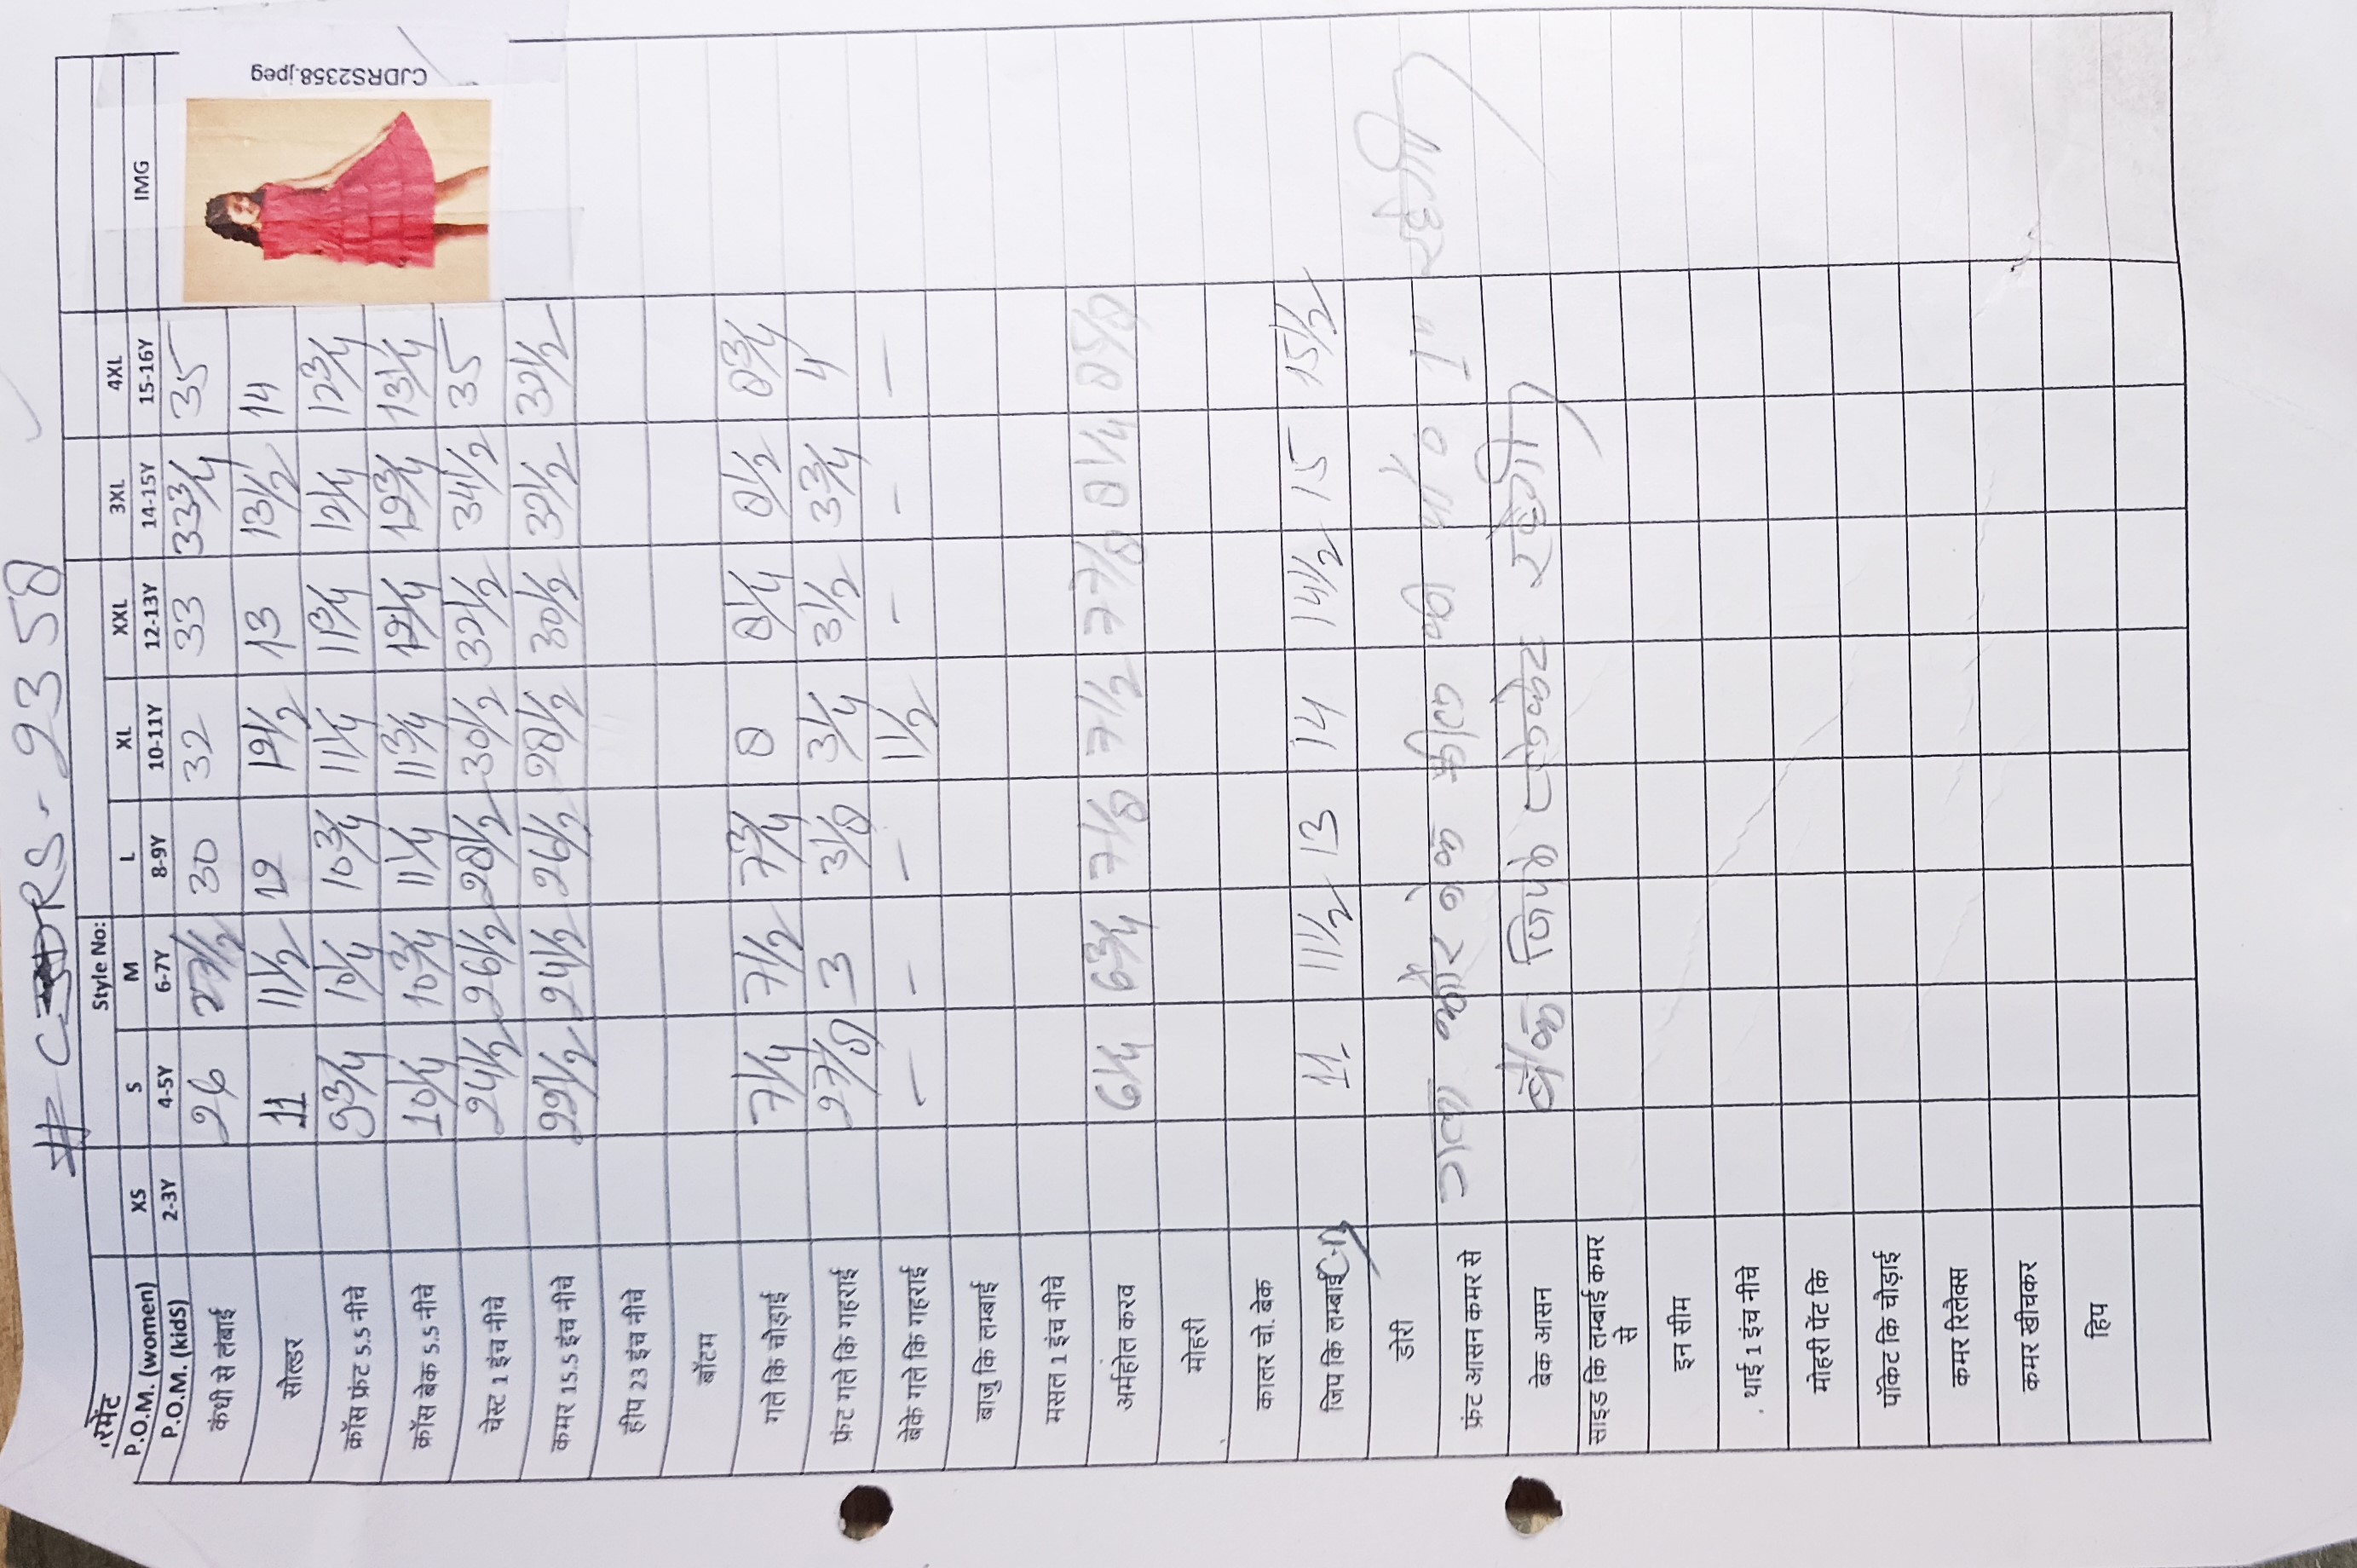 # CJDRS-2358
CJDRS2358.jpeg
Style No:
रमेंट
P.O.M. (women) XS S M L XL XXL 3XL 4XL IMG
P.O.M. (kids) 2-3Y 4-5Y 6-7Y 8-9Y 10-11Y 12-13Y 14-15Y 15-16Y
कंधी से लंबाई 26 27 1/2 30 32 33 33 3/4 35
सोल्डर 11 11 1/2 12 12 1/2 13 13 1/2 14
क्रॉस फ्रंट 5.5 नीचे 9 3/4 10 1/4 10 3/4 11 1/4 11 3/4 12 1/4 12 3/4
क्रॉस बेक 5.5 नीचे 10 1/4 10 3/4 11 1/4 11 3/4 12 1/4 12 3/4 13 1/4
चेस्ट 1 इंच नीचे 24 1/2 26 1/2 28 1/2 30 1/2 32 1/2 34 1/2 35
कमर 15.5 इंच नीचे 22 1/2 24 1/2 26 1/2 28 1/2 30 1/2 32 1/2 32 1/2
हीप 23 इंच नीचे
बॉटम
गले कि चोड़ाई 7 1/4 7 1/2 7 3/4 8 8 1/4 8 1/2 8 3/4
फ्रंट गले कि गहराई 2 7/8 3 3 1/8 3 1/4 3 1/2 3 3/4 4
बेके गले कि गहराई - - - 1 1/2 - - -
बाजु कि लम्बाई
मसल 1 इंच नीचे
अर्महोल करव 6 1/4 6 3/4 7 1/8 7 1/2 7 7/8 8 1/4 8 5/8
मोहरी
कालर चो. बेक
जिप कि लम्बाई 11 11 1/2 13 14 14 1/2 15 15 1/2
डोरी
फ्रंट आसन कमर से गला और बेक कील की प० 1" रहेगी
बेक आसन बैक जिपर टनकेट रहेगी
साइड कि लम्बाई कमर
से
इन सीम
. थाई 1 इंच नीचे
मोहरी पेंट कि
पॉकेट कि चौड़ाई
कमर रिलैक्स
कमर खीचकर
हिप